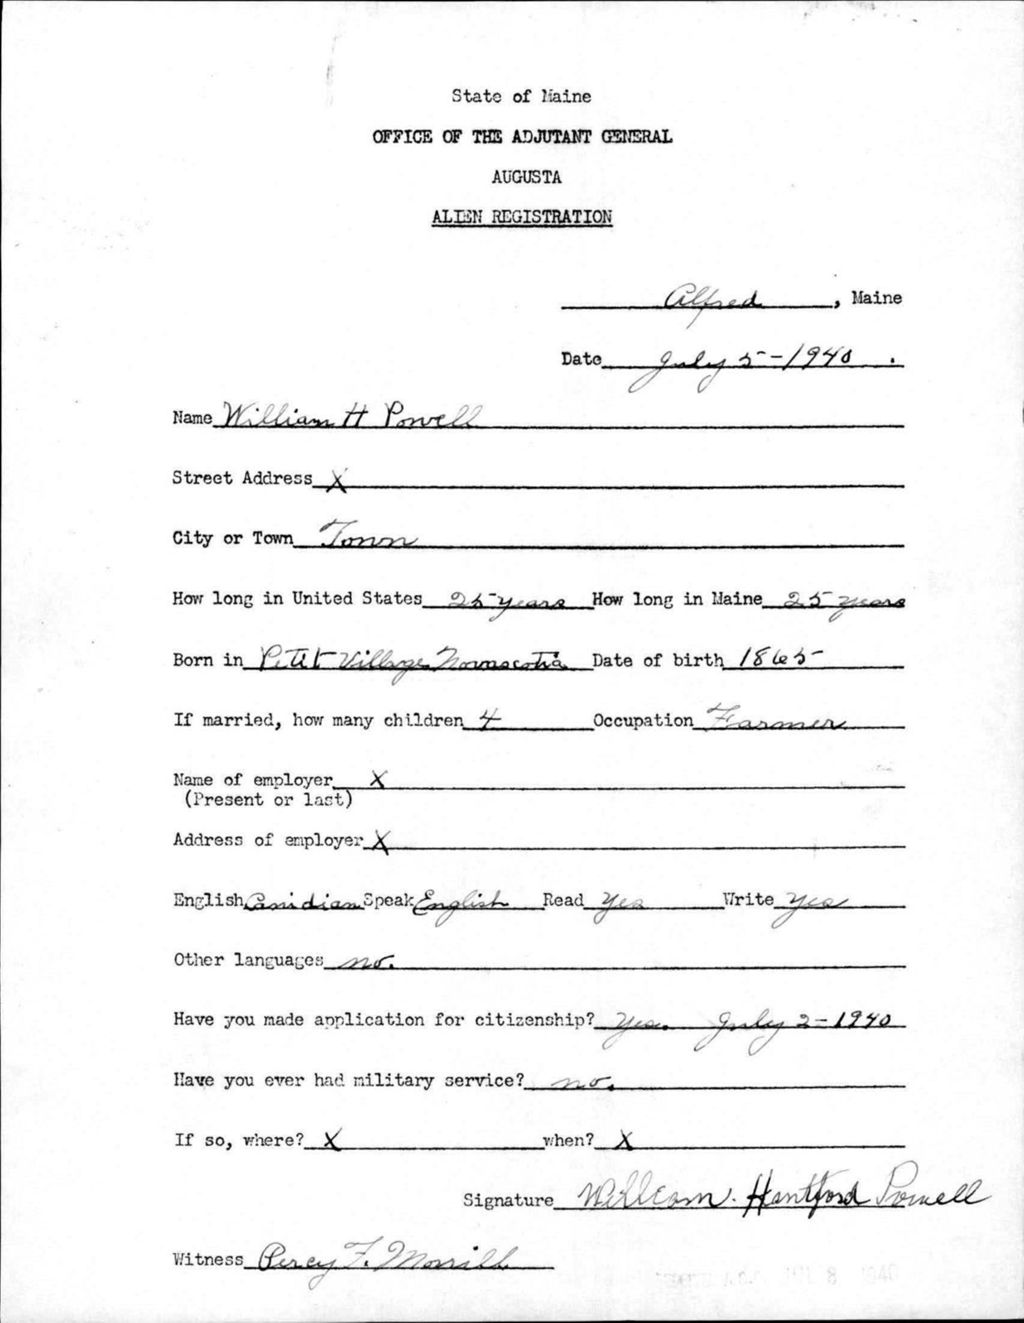 State of Maine
OFFICE OF THE ADJUTANT GENERAL
AUGUSTA
ALIEN REGISTRATION
Alfred, Maine
Date July 5-1940.
Name William H Powell
Street Address X
City or Town Town
How long in United States 25 years How long in Maine 25 years
Born in Petit Village Novascotia Date of birth 1865
If married, how many children 4 Occupation Farmer
Name of employer X
(Present or last)
Address of employer X
English Canidian Speak English Read Yes Write Yes
Other languages no.
Have you made application for citizenship? Yes. July 2-1940
Have you ever had military service? no.
If so, where? X when? X
Signature William. Hantford Powell
Witness Percy F. Morrill
JUL 8 1940